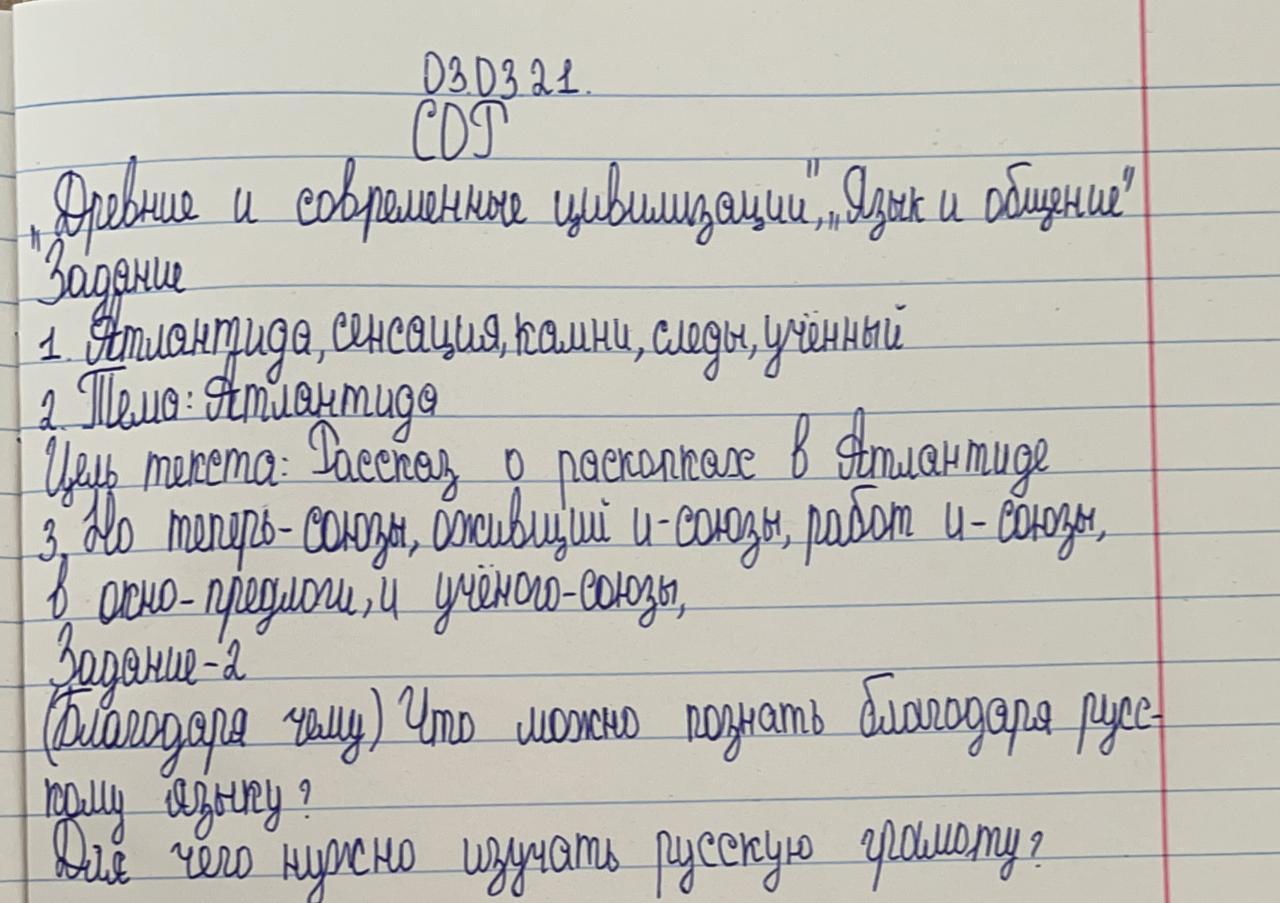 03.03.21.
СОГ
„Древние и современные цивилизации", „Язык и общение"
Задание
1. Атлантида, сенсация, камни, следы, учённый
2. Тема: Атлантида
Цель текста: Рассказ о раскопках в Атлантиде
3. Но теперь-союзы, оживщий и-союзы, работ и-союзы,
в окно-предлоги, и учёного-союзы,
Задание-2
(Благодаря чему) Что можно познать благодаря русс-
кому языку?
Для чего нужно изучать русскую грамоту?